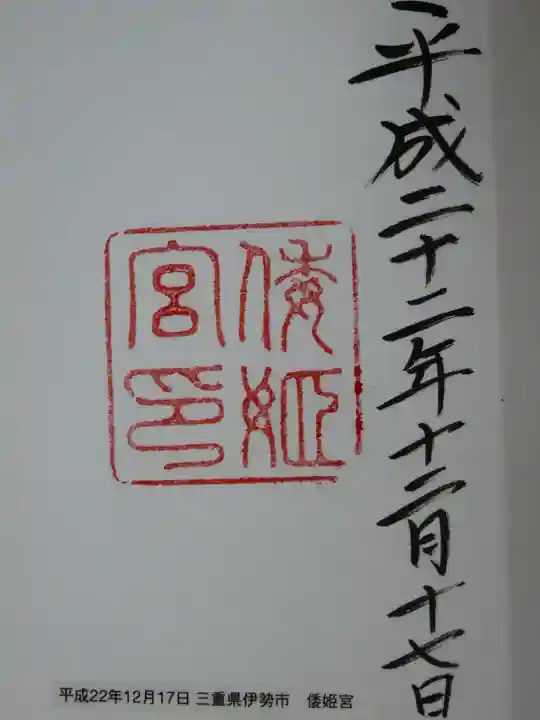 平成二十二年十二月十七日
倭姫
宮印
平成22年12月17日 三重県伊勢市 倭姫宮